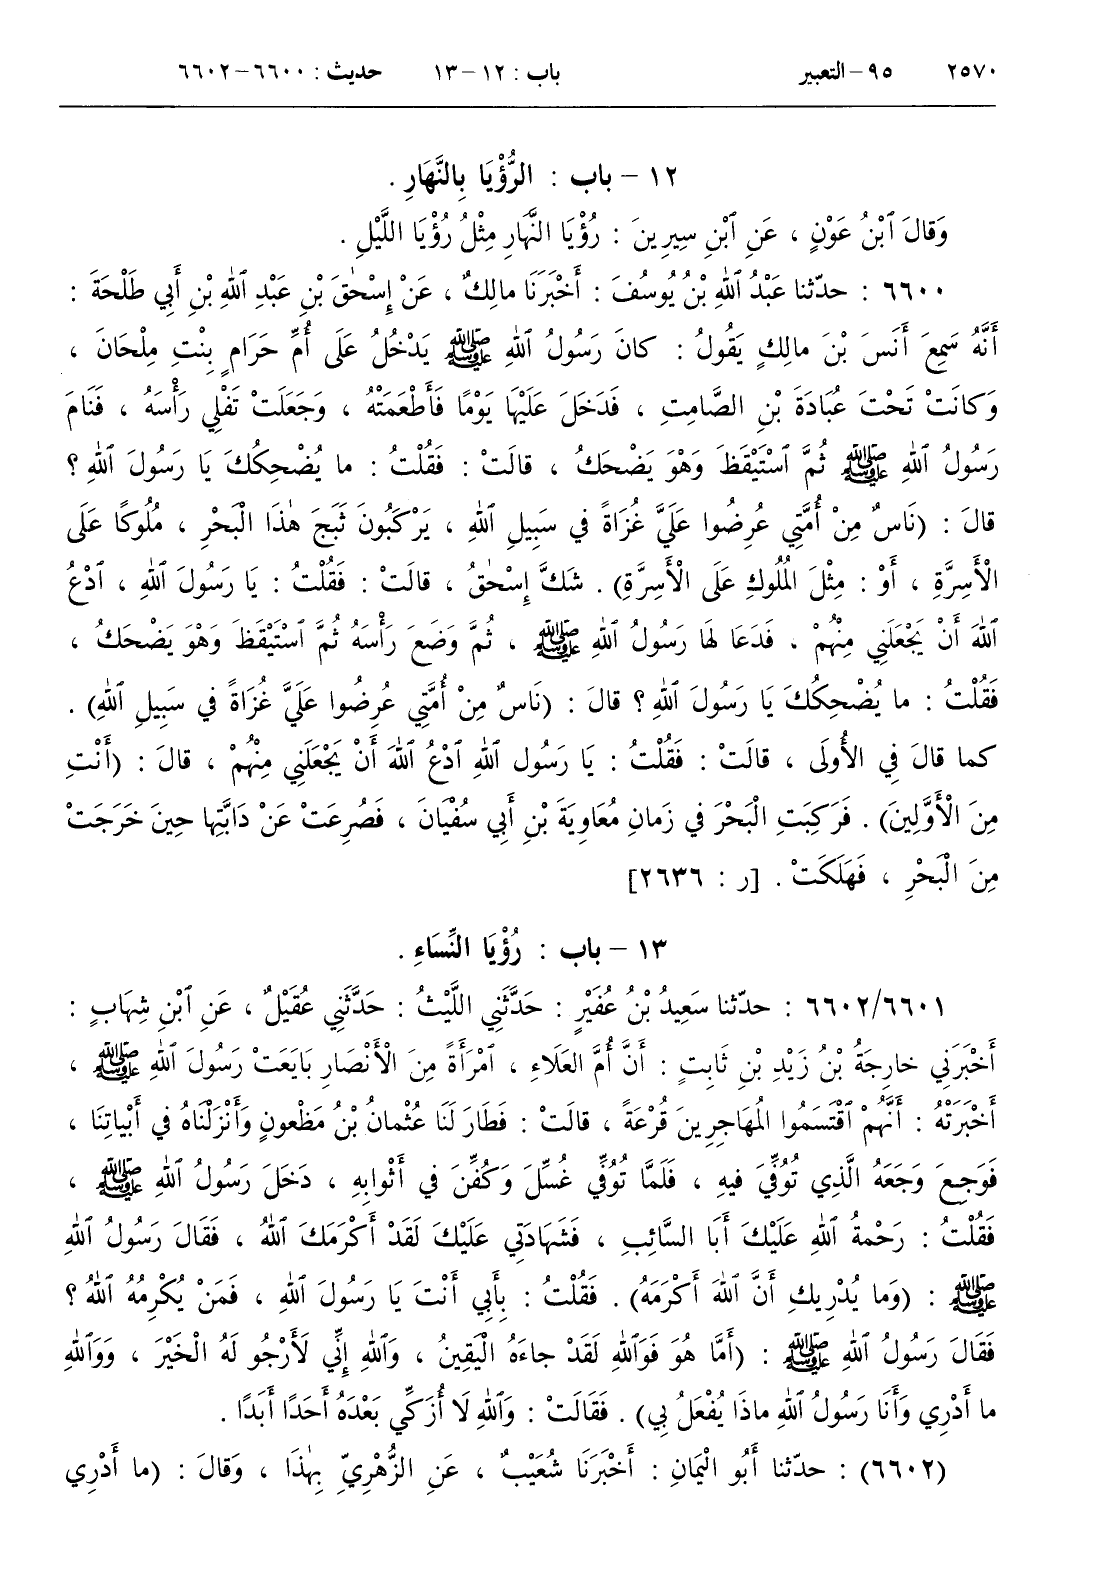 ٢٥٧٠ ٩٥-التعبير باب : ١٢-١٣ حديث : ٦٦٠٠-٦٦٠٢
١٢ - باب : الرُّؤْيَا بِالنَّهَارِ .
وَقالَ ٱبْنُ عَوْنٍ ، عَنِ ٱبْنِ سِيرِينَ : رُؤْيَا النَّهَارِ مِثْلُ رُؤْيَا اللَّيْلِ .
٦٦٠٠ : حدّثنا عَبْدُ ٱللهِ بْنُ يُوسُفَ : أَخْبَرَنَا مالِكٌ ، عَنْ إِسْحٰقَ بْنِ عَبْدِ ٱللهِ بْنِ أَبِي طَلْحَةَ :
أَنَّهُ سَمِعَ أَنَسَ بْنَ مالِكٍ يَقُولُ : كانَ رَسُولُ ٱللهِ ﷺ يَدْخُلُ عَلَى أُمِّ حَرَامٍ بِنْتِ مِلْحَانَ ،
وَكانَتْ تَحْتَ عُبَادَةَ بْنِ الصَّامِتِ ، فَدَخَلَ عَلَيْهَا يَوْمًا فَأَطْعَمَتْهُ ، وَجَعَلَتْ تَفْلِي رَأْسَهُ ، فَنَامَ
رَسُولُ ٱللهِ ﷺ ثُمَّ ٱسْتَيْقَظَ وَهْوَ يَضْحَكُ ، قالَتْ : فَقُلْتُ : ما يُضْحِكُكَ يَا رَسُولَ ٱللهِ ؟
قالَ : (نَاسٌ مِنْ أُمَّتِي عُرِضُوا عَلَيَّ غُزَاةً في سَبِيلِ ٱللهِ ، يَرْكَبُونَ ثَبَجَ هٰذَا الْبَحْرِ ، مُلُوكًا عَلَى
الْأَسِرَّةِ ، أَوْ : مِثْلَ الْمُلُوكِ عَلَى الْأَسِرَّةِ) . شَكَّ إِسْحٰقُ ، قالَتْ : فَقُلْتُ : يَا رَسُولَ ٱللهِ ، ٱدْعُ
ٱللهَ أَنْ يَجْعَلَنِي مِنْهُمْ . فَدَعَا لَهَا رَسُولُ ٱللهِ ﷺ ، ثُمَّ وَضَعَ رَأْسَهُ ثُمَّ ٱسْتَيْقَظَ وَهْوَ يَضْحَكُ ،
فَقُلْتُ : ما يُضْحِكُكَ يَا رَسُولَ ٱللهِ ؟ قالَ : (نَاسٌ مِنْ أُمَّتِي عُرِضُوا عَلَيَّ غُزَاةً في سَبِيلِ ٱللهِ) .
كما قالَ في الْأُولَى ، قالَتْ : فَقُلْتُ : يَا رَسُولَ ٱللهِ ٱدْعُ ٱللهَ أَنْ يَجْعَلَنِي مِنْهُمْ ، قالَ : (أَنْتِ
مِنَ الْأَوَّلِينَ) . فَرَكِبَتِ الْبَحْرَ في زَمانِ مُعَاوِيَةَ بْنِ أَبِي سُفْيَانَ ، فَصُرِعَتْ عَنْ دَابَّتِهَا حِينَ خَرَجَتْ
مِنَ الْبَحْرِ ، فَهَلَكَتْ . [ر : ٢٦٣٦]
١٣ - باب : رُؤْيَا النِّسَاءِ .
٦٦٠٢/٦٦٠١ : حدّثنا سَعِيدُ بْنُ عُفَيْرٍ : حَدَّثَنِي اللَّيْثُ : حَدَّثَنِي عُقَيْلٌ ، عَنِ ٱبْنِ شِهَابٍ :
أَخْبَرَنِي خارِجَةُ بْنُ زَيْدِ بْنِ ثَابِتٍ : أَنَّ أُمَّ الْعَلَاءِ ، ٱمْرَأَةً مِنَ الْأَنْصَارِ بَايَعَتْ رَسُولَ ٱللهِ ﷺ ،
أَخْبَرَتْهُ : أَنَّهُمْ ٱقْتَسَمُوا الْمُهَاجِرِينَ قُرْعَةً ، قالَتْ : فَطَارَ لَنَا عُثْمانُ بْنُ مَظْعُونٍ وَأَنْزَلْنَاهُ في أَبْيَاتِنَا ،
فَوَجِعَ وَجَعَهُ الَّذِي تُوُفِّيَ فِيهِ ، فَلَمَّا تُوُفِّيَ غُسِّلَ وَكُفِّنَ في أَثْوَابِهِ ، دَخَلَ رَسُولُ ٱللهِ ﷺ ،
فَقُلْتُ : رَحْمَةُ ٱللهِ عَلَيْكَ أَبَا السَّائِبِ ، فَشَهَادَتِي عَلَيْكَ لَقَدْ أَكْرَمَكَ ٱللهُ ، فَقَالَ رَسُولُ ٱللهِ
ﷺ : (وَما يُدْرِيكِ أَنَّ ٱللهَ أَكْرَمَهُ) . فَقُلْتُ : بِأَبِي أَنْتَ يَا رَسُولَ ٱللهِ ، فَمَنْ يُكْرِمُهُ ٱللهُ ؟
فَقَالَ رَسُولُ ٱللهِ ﷺ : (أَمَّا هُوَ فَوَٱللهِ لَقَدْ جاءَهُ الْيَقِينُ ، وَٱللهِ إِنِّي لَأَرْجُو لَهُ الْخَيْرَ ، وَوَٱللهِ
ما أَدْرِي وَأَنَا رَسُولُ ٱللهِ ماذَا يُفْعَلُ بِي) . فَقَالَتْ : وَٱللهِ لَا أُزَكِّي بَعْدَهُ أَحَدًا أَبَدًا .
(٦٦٠٢) : حدّثنا أَبُو الْيَمانِ : أَخْبَرَنَا شُعَيْبٌ ، عَنِ الزُّهْرِيِّ بِهٰذَا ، وَقالَ : (ما أَدْرِي